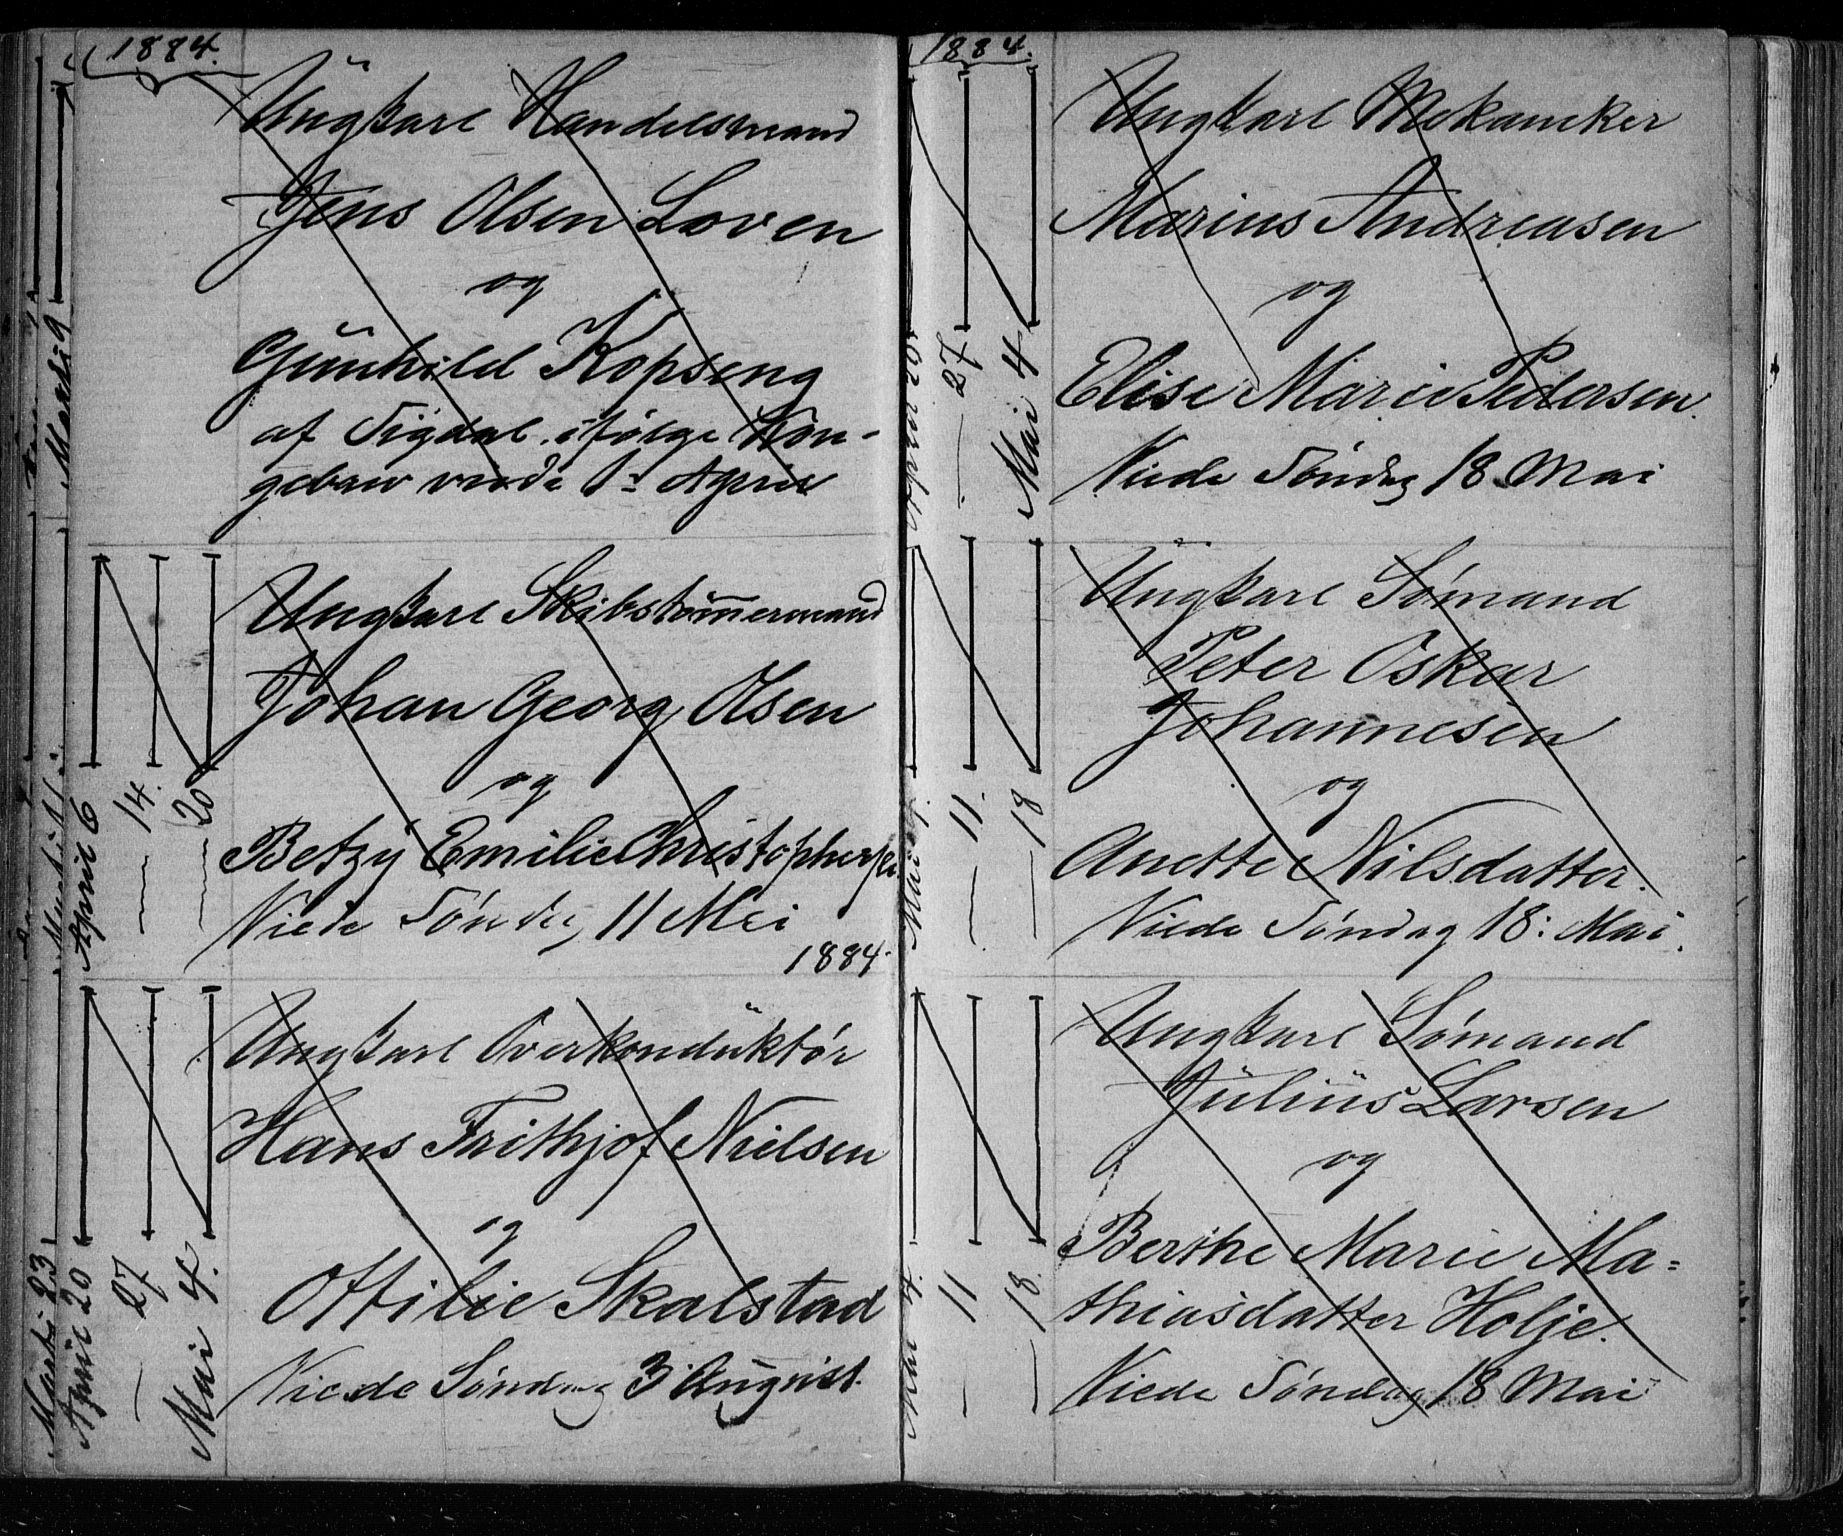 1884.
Ungkarl Handelsmand
Jens Olsen Loven
og
Gunhild Kopseng
af Sigdal ifølge Kon-
gebrev viede 1ste April
April 6
— 14.
— 20
Ungkarl Skibstømmermand
Johan Georg Olsen
og
Betzy Emilie Christophersen
Viede Søndag 11 Mai
1884.
April 20
— 27
Mai 4.
Ungkarl Overkonduktør
Hans Frithjof Nielsen
og
Ottilie Skalstad
Viede Søndag 3 August.
Marts 9
Marts 23
1884.
April 20
— 27
Mai 4
Ungkarl Mekaniker
Marius Andreasen
og
Elise Marie Pedersen
Viede Søndag 18 Mai
Mai 4
— 11.
— 18
Ungkarl Sømand
Peter Oskar
Johannesen
og
Anette Nilsdatter.
Viede Søndag 18: Mai.
Mai 4
— 11
— 18.
Ungkarl Sømand
Julius Larsen
og
Berthe Marie Ma=
thiasdatter Holje.
Viede Søndag 18 Mai